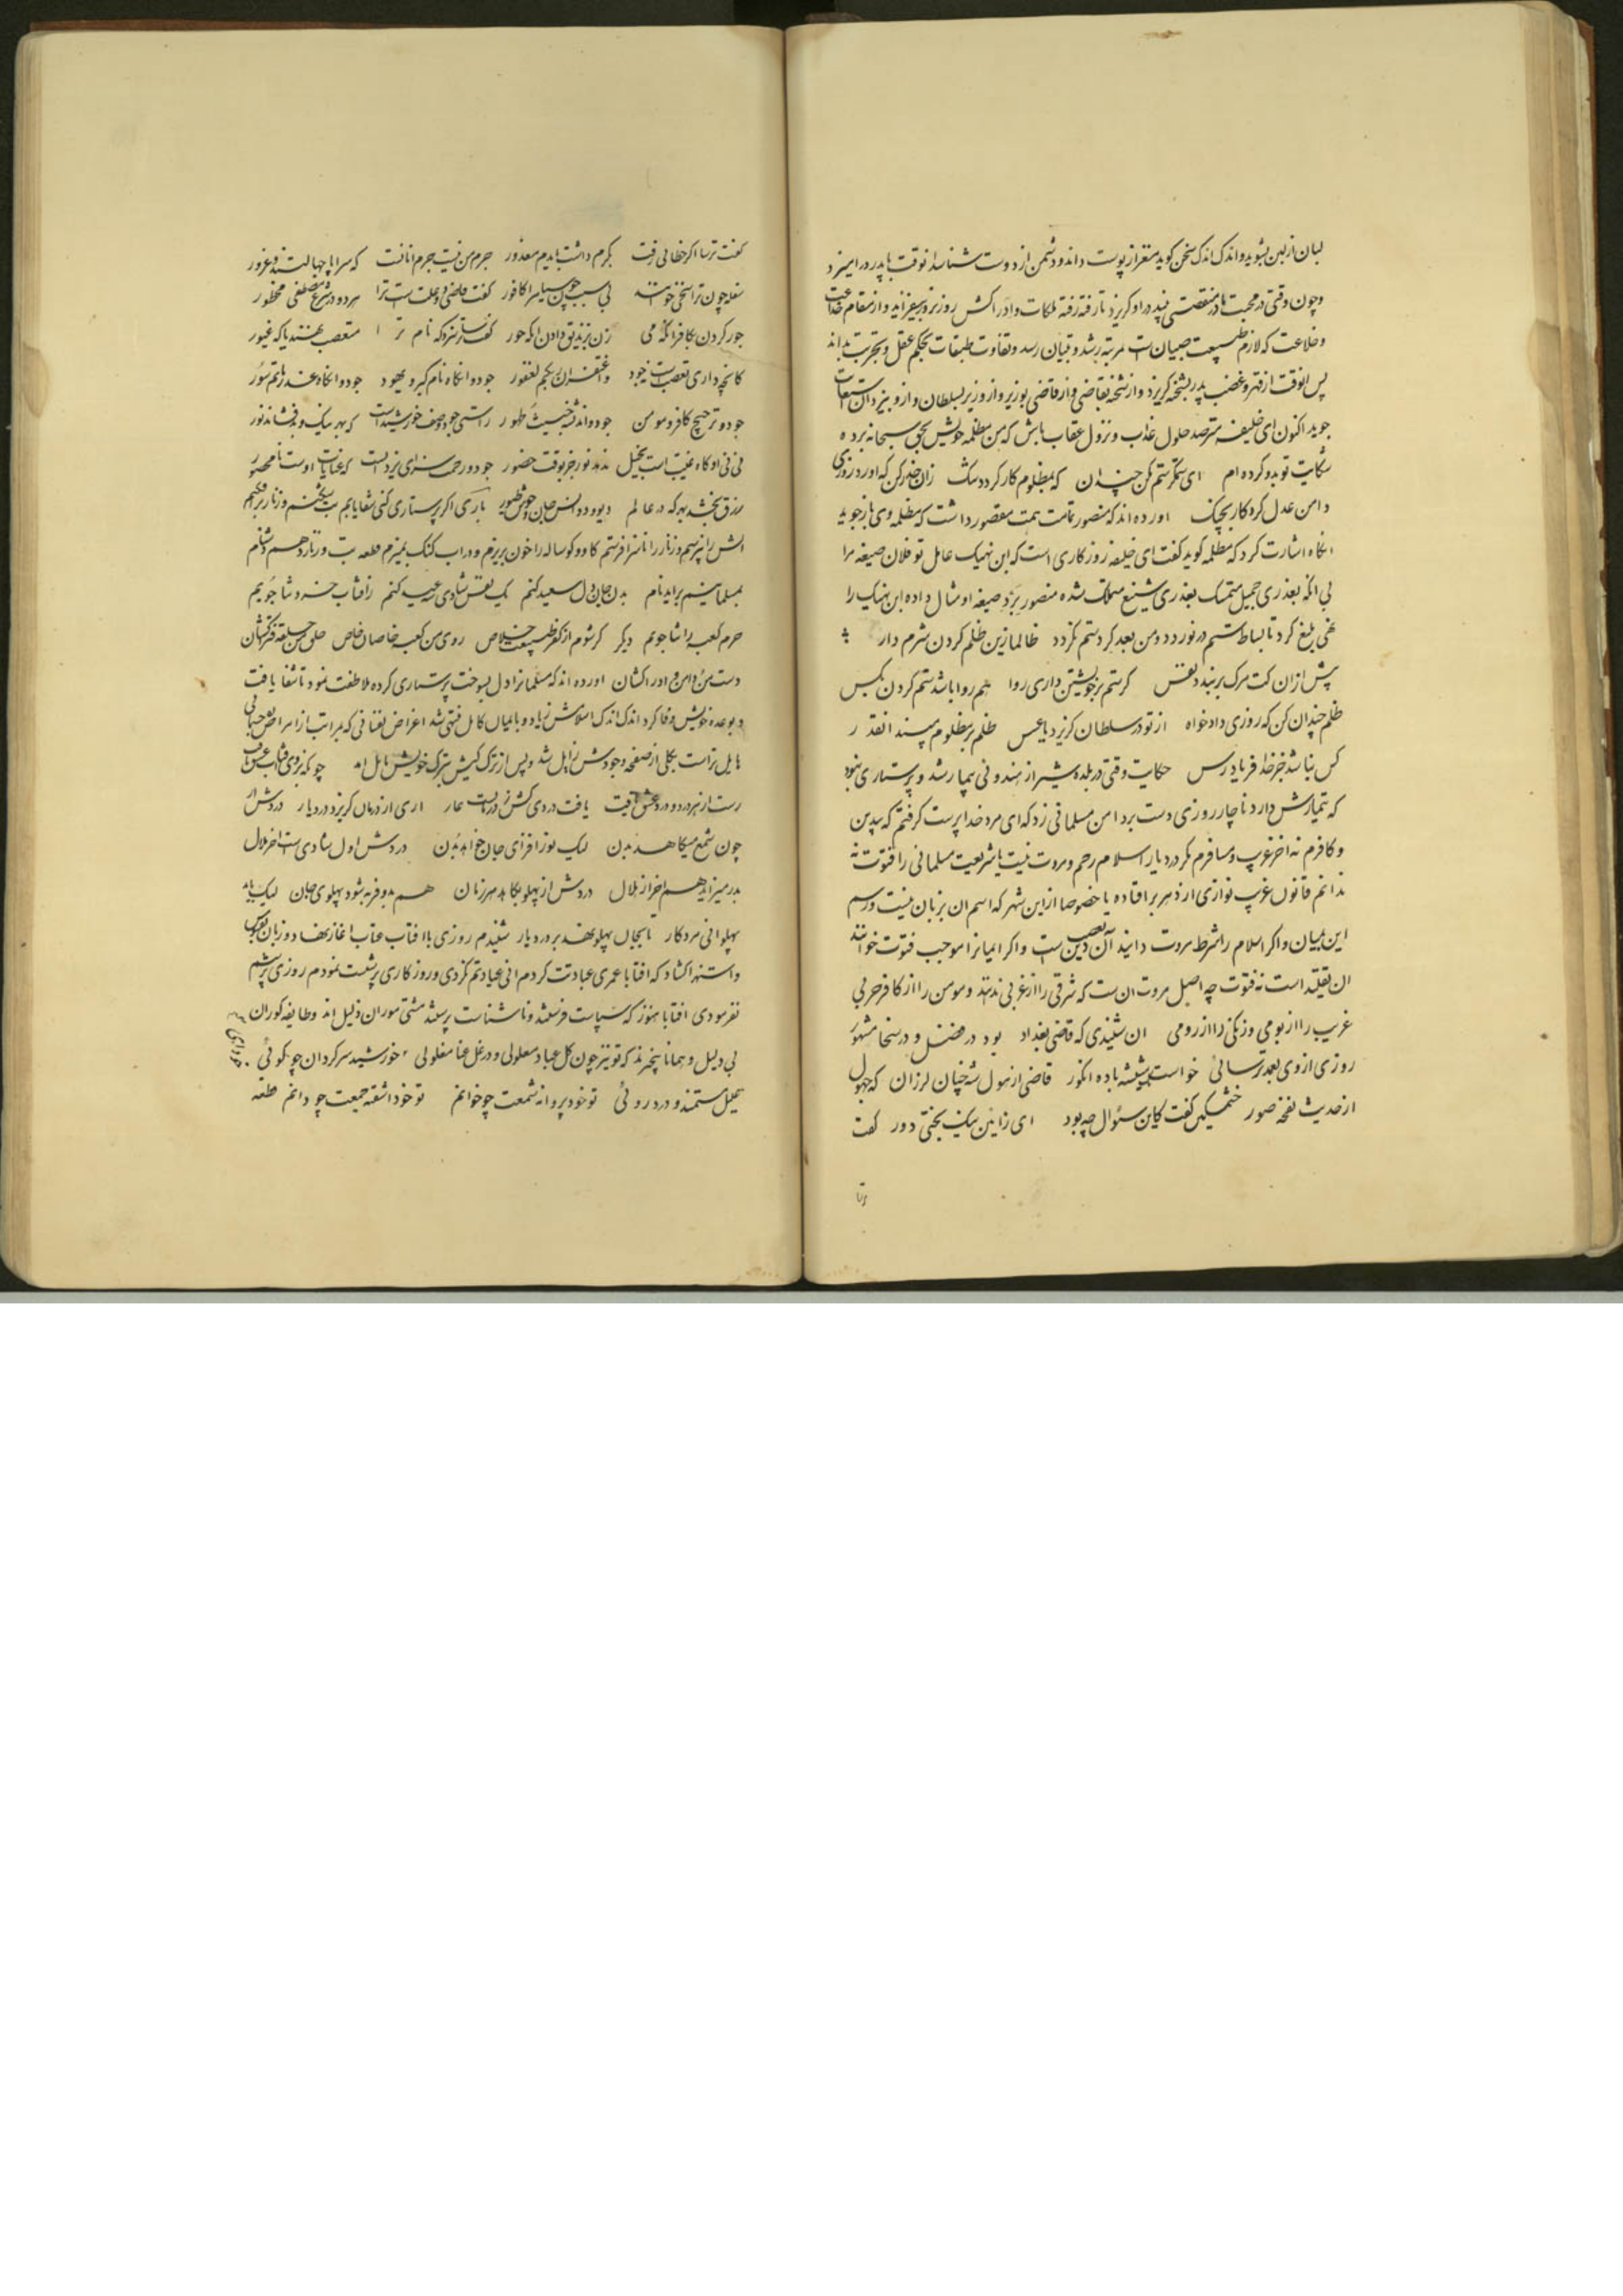 لبان از لبن بشوید و اندک اندک سخن کوید مغز از پوست داند و دشمن از دوست شناسد انوقت با پدر درامیزد
و چون وقتی در محبت مادر منقصتی بیند در او کریزد تا رفته رفته ملکات وادراکش روز بروز بیفزاید و از مقام
و خلاعت که لازم طبیعت صبیان است بمرتبه رشد و تبیان رسد و تفاوت طبقات بحکم عقل و تجربت بداند
پس انوقت از قهر و غضب پدر بشحنه کریزد و از شحنه بقاضی و از قاضی بوزیر و از وزیر بسلطان و از و بیزدان استغاثت
جوید اکنون ای خلیفه مترصد حلول عذاب و نزول عقاب باش که من مظلمه خویش بحق سبحانه برده
شکایت تو بدو کرده ام ای ستمکر ستم مکن چندان که بمظلوم کار کردد سخت زان حذر کن که اورد روزی
دامن عدل کردکار بچنک اورده اند که منصور تمامت همت مقصور داشت که مظلمه وی باز جوید
انکاه اشارت کرد که مظلمه کوید کفت ای خلیفه روزکاری است که ابن نهیک عامل تو فلان ضیعه مرا
بی انکه بعذری جمیل متمسک بعذری شنیع متملک شده منصور برد ضیعه او مثال داده ابن نهیک را
نهی بلیغ کرد تا بساط ستم در نوردد و من بعد کرد ستم نکردد ظالما زین ظلم کردن شرم دار
پیش از ان کت مرک بربندد نفس کر ستم بر خویشتن داری روا هم روا باشد ستم کردن بکس
ظلم چندان کن که روزی دادخواه از تو در سلطان کریزد یا عسس ظلم بر مظلوم مپسند انقدر
کس نباشد جز خدا فریادرس حکایت وقتی در بلده شیراز هندوئی بیمار شد و پرستاری نبود
که تیمارش دارد ناچار روزی دست برد امن مسلمانی زد که ای مرد خدا پرست کرفتم که بیدین
و کافرم نه اخر غریب و مسافرم مکر در دیار اسلام رحم و مروت نیست یا شریعت مسلمانی را فتوت نه
ندانم قانون غریب نوازی از دهر بر افتاده یا خصوصا از این شهر که اسم ان بر زبان نیست و رسم
این بمیان و اکر اسلام را شرط مروت دانید آن تعصب دین است و اکر ایمانرا موجب فتوت خوانند
ان تقیّه است نه فتوت چه اصل مروت ان ست که شرقی را از غربی ندانند و مومن را از کافر حربی
غریب را از بومی و زنکی را از رومی ان شنیدی که قاضی بغداد بود در فضل و در سخا مشهور
روزی از وی بعمد ترسائی خواست یک شیشه باده انکور قاضی از هول شد چنان لرزان که جهول
از حدیث نفخه صور خشمکین کفت کاین سئوال چه بود ای ز آئین نیک بختی دور کفت
کفت ترسا اکر خطائی رفت بکرم داشت بایدم معذور جرم من نیست جرم انانست که سراپا جهالتند و غرور
سفله چون ترا سخی خوانند بی سبب چون سیاه را کافور کفت قاضی دو علت ست ترا هر دو در شرع مصطفی محظور
جور کردن بکافر انکه می زن بزندیق دادن انکه حور کفت ترسا نزد که نام ترا متعصب نهند یا که غیور
کانچه داری تعصب ست نجود و اعتقران بحکم لغفور جود و انکاه نام کبر و یهود جود و انکاه عذر ماتم و سور
جود و ترجیح کافر و مومن جود و اندیشه خبیث و طهور راستی جود وصف خورشیدست که بهر نیک و بد فشاند نور
نی نی او کاه غیبت است بخیل ندهد نور جز بوقت حضور جود و رحمت سزای یزدانست که عنایات اوست نامحصور
رزق بخشد بهر که در عالم دیو و دد انس و جان و وحوش و طیور باری اکر پرستاری کنی شفا یابم بت بشکنم و زنار برافکنم
اتش را نپرستم و زنار را ناسزا فرستم کاو و کوساله را خون بریزم و در اب کنک بمیزم قطعه بت و زنار دهم دشنام
بمسلمانیم براید نام بدن و جان و دل سعید کنم یک نفس شادی عید کنم ز افتاب خسرو شا جویم
حرم کعبه را شما جویم دیکر کر شوم از کفر طبیعت خلاص روی من و کعبه خاصان خاص حلق من و حلقه فتراکشان
دست من و دامن ادراکشان اورده اند که مسلمانرا دل بسوخت پرستاری کرده ملاطفت نمود تا شفا یافت
و بوعده خویش وفا کرد اندک اندک اسلامش زیاد و بایمان کامل منتهی شد اغراض نفسانی که بمراتب از امراض جسمانی
هایل تر است بکلی از صفحه وجودش زایل شد و پس از ترک کیش بترک خویش مایل امد چونکه بروی تافت
رست از هر درد و درد عشق یافت یافت دردی کش ز درمانست عار اری از درمان کریزد درد یار دردش ار
چون شمع میکاهد بدن لیک نور افزای جان خواهد بدن دردش اول شادی ست اخر ملال
بدر میزاید هم اخر از هلال دردش از پهلو بکاهد هر زمان هم بدو فربه شود پهلوی جان لیک باید
پهلوانی مرد کار تا بجان پهلو نهد بر درد یار شنیدم روزی با افتاب عتاب اغاز نهاد و زبان
و استهزا کشاد که افتابا عمری عبادتت کردم انی عیادتم نکردی و روزکاری پرستشت نمودم روزی پرسشم
نفرمودی افتابا هنوز که سپاست فرستند و ناشناست پرستند مشتی موران ذلیل اند و طایفه کوران
بی دلیل و همانا بیخبرند که تو نیز چون کل عباد معلولی و در غل عنا مغلولی خورشید سرکردان چو کوئی
علیل مستمند و درد روئی تو خود پروانه شمعت چو خوانم تو خود اشفته جمعت چو دانم قطعه